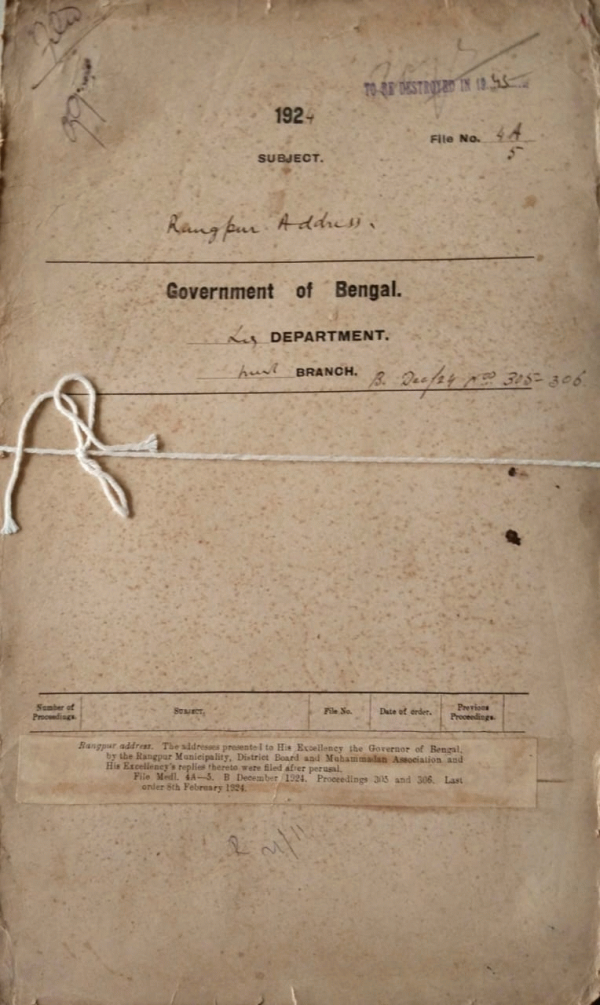 TO BE DESTROYED IN 19 45
1924
File No. 4A
5
SUBJECT.
Rangpur Address.
Government of Bengal.
DEPARTMENT.
BRANCH. B. Dec/24 Nos 305-306
Number of Proceedings. SUBJECT. File No. Date of order. Previous Proceedings.
Rangpur address. The addresses presented to His Excellency the Governor of Bengal,
by the Rangpur Municipality, District Board and Muhammadan Association and
His Excellency's replies thereto were filed after perusal.
File Medl. 4A—5. B December 1924. Proceedings 305 and 306. Last
order 8th February 1924.